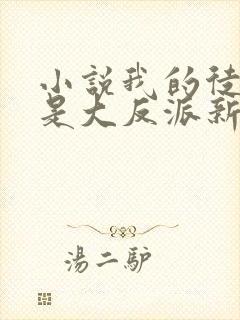 小說我的徒
是大反派新
湯二驴